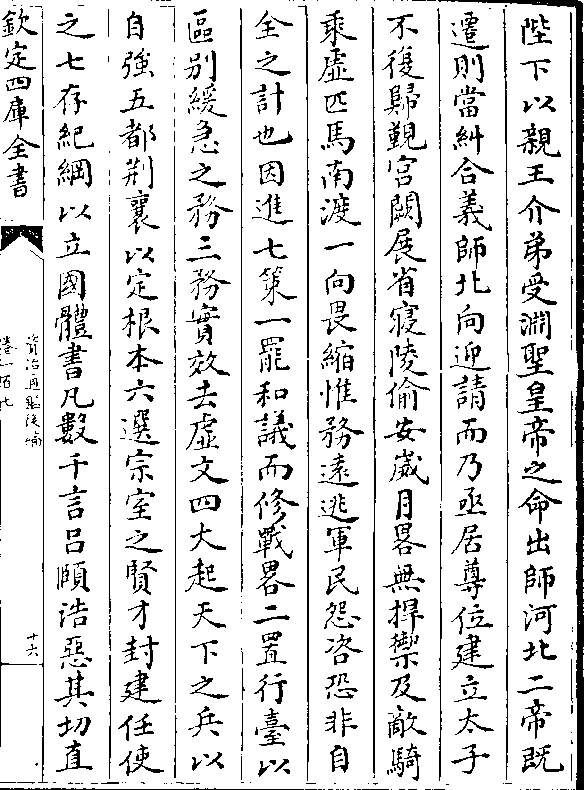 陛下以親王介弟受淵聖皇帝之命出師河北二帝既
遷則當糾合義師北向迎請而乃亟居尊位建立太子
不復歸覲宮闕展省寢陵偷安嵗月畧無捍禦及敵騎
乘虛匹馬南渡一向畏縮惟務逺逃軍民怨咨恐非自
全之計也因進七策一罷和議而修戰畧二置行臺以
區别緩急之務三務實效去虛文四大起天下之兵以
自強五都荆襄以定根本六選宗室之賢才封建任使
之七存紀綱以立國體書凡數千言吕頤浩惡其切直
欽定四庫全書
資治通鑑後編
卷一百七
十六